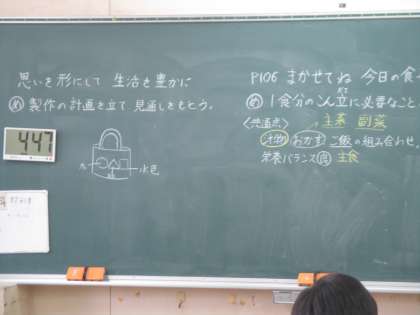 思いを形にして 生活を豊かに
め 製作の計画を立て 見通しをもとう。
447
水色
P106 まかせてね 今日の食
め 1食分のこん立に必要なこと
<共通点> 主菜 副菜
汁物 おかず ご飯の組み合わせ。
栄養バランス 主食